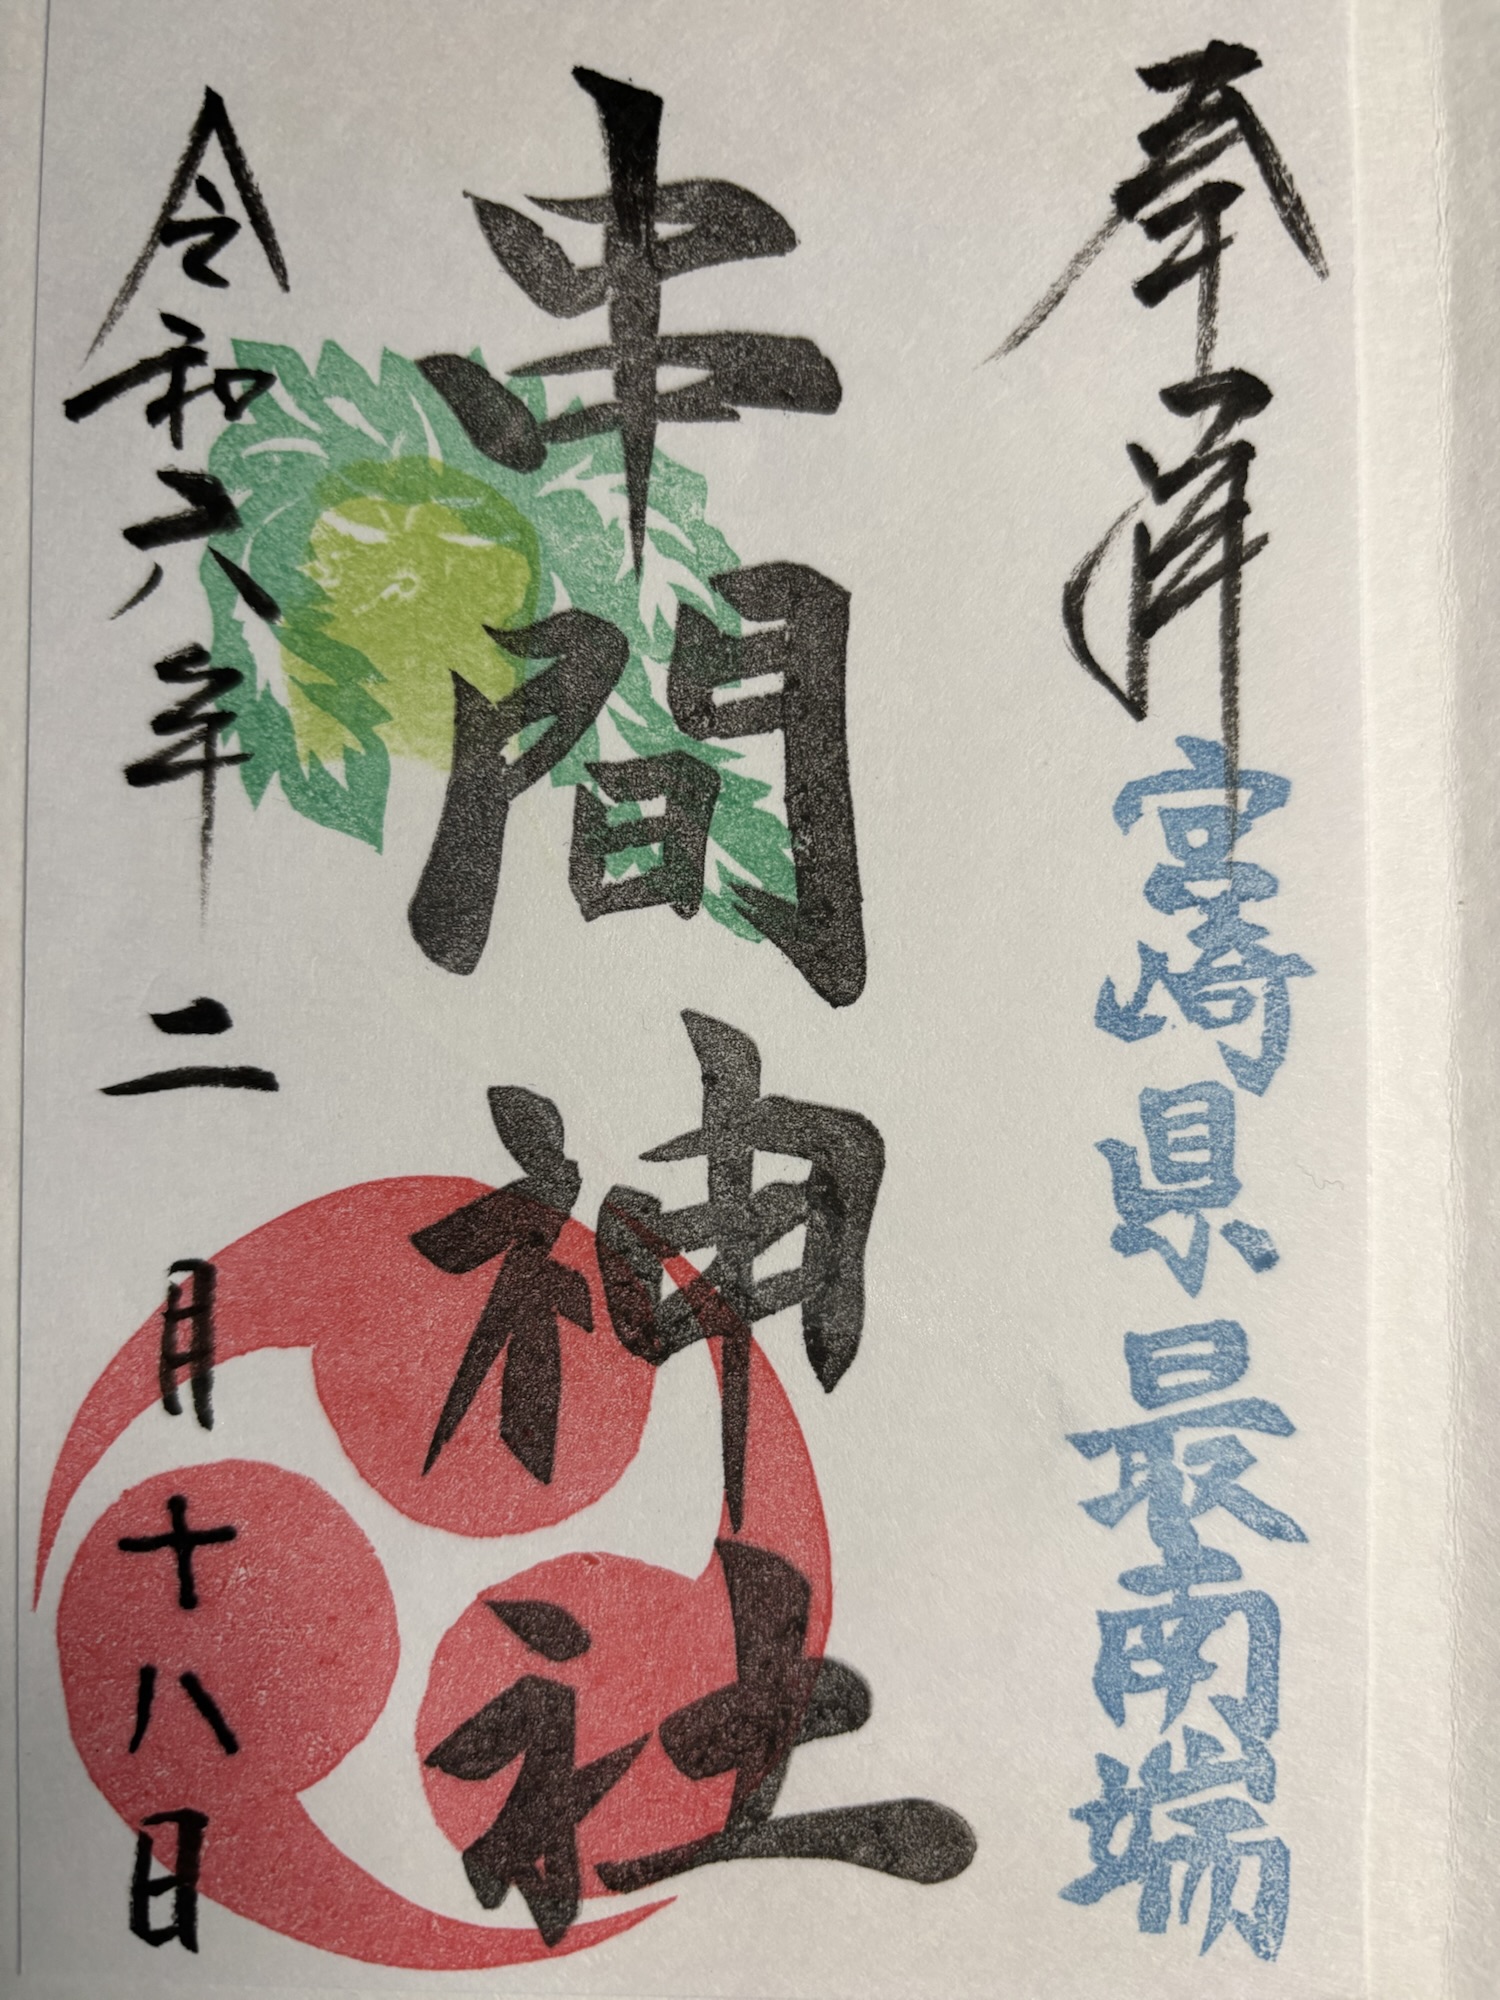 奉拝
宮崎県最南端
串間神社
令和六年二月十八日